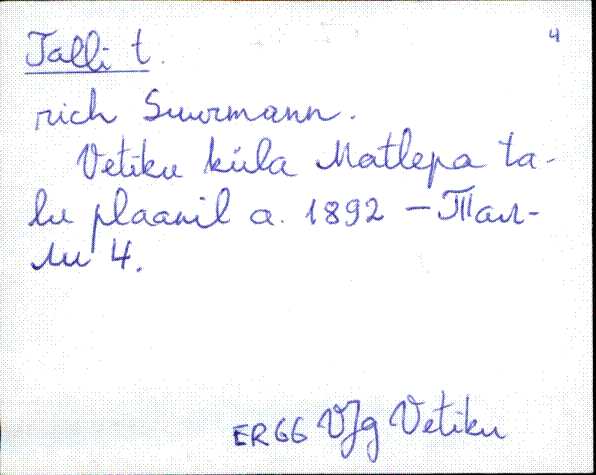 4
Talli t.
rich Suurmann.
Vetiku küla Matlepa ta-
lu plaanil a. 1892 – Тал-
ли 4.
ER66 VJg Vetiku